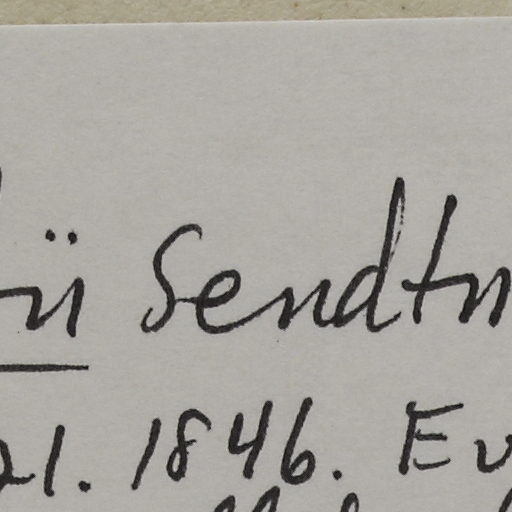 ü Sendtn
21. 1846. Ev